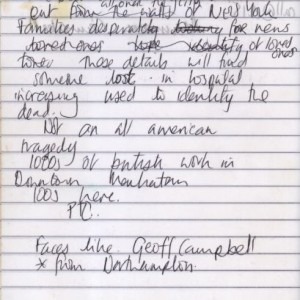 out from the walls of New York
Families desperately for news
loved ones identity of loved ones
these details will
someone lost in hospital
increasing used to identify the
dead.
Not an all american
tragedy
1000s of british work in
Downtown Manhattan
100s here.
PTC.
Faces like Geoff Campbell
* from Northampton